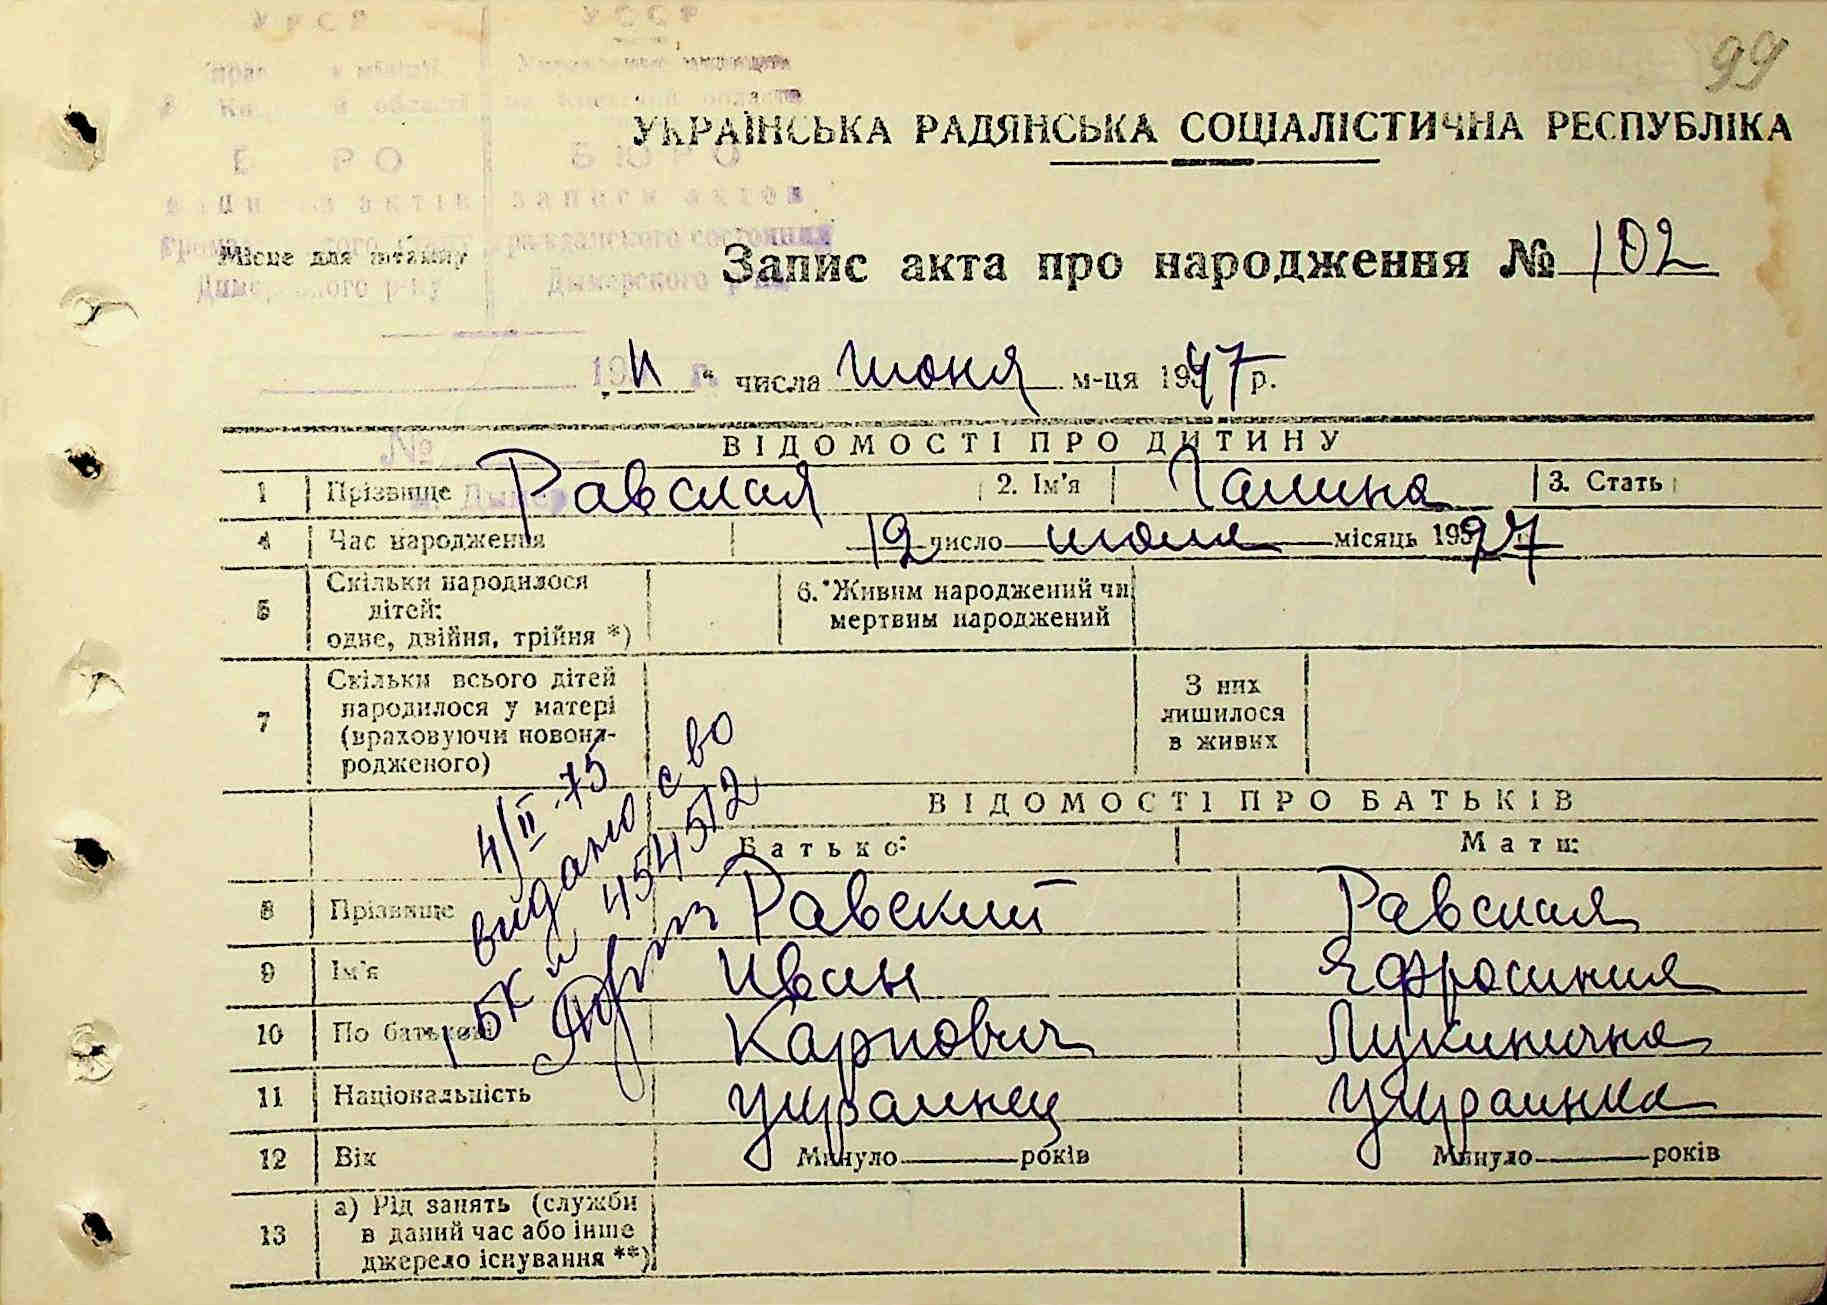 99
УРСР УССР
Управление милиции
Київській області по Киевской области
БЮРО БЮРО
записи актів записи актов
гражданского состояния
Димерського р-ну Дымерского р-на
УКРАЇНСЬКА РАДЯНСЬКА СОЦІАЛІСТИЧНА РЕСПУБЛІКА
Місце для штампу
Запис акта про народження № 102
„11 “ числа июня м-ця 1947 р.
№
ВІДОМОСТІ ПРО ДИТИНУ
1 Прізвище Равская 2. Ім'я Галина 3. Стать
4 Час народження 12 число июля місяць 1927
5 Скільки народилося дітей: одне, двійня, трійня *) 6. Живим народжений чи мертвим народжений
7 Скільки всього дітей народилося у матері (враховуючи новонародженого) З них лишилося в живих
4/II-75
видано с во
І БК № 454512
ВІДОМОСТІ ПРО БАТЬКІВ
Батько: Мати:
8 Прізвище Равский Равская
9 Ім'я Иван Ефросиния
10 По батькові Карпович Лукинична
11 Національність украинец украинка
12 Вік Минуло років Минуло років
13 а) Рід занять (служби
в даний час або інше
джерело існування **)